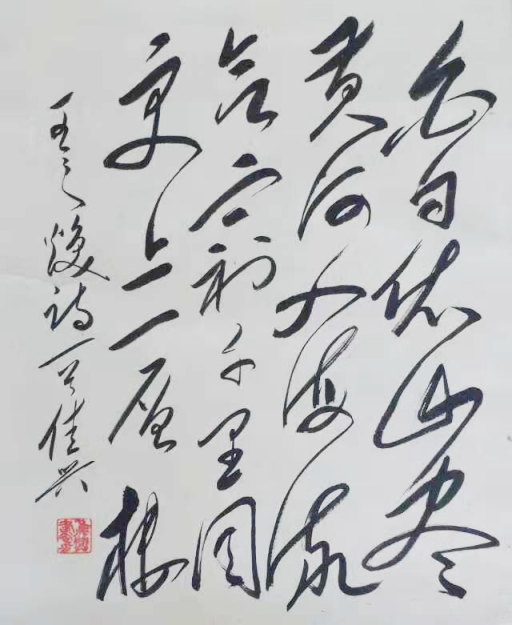 白日依山尽
黄河入海流
欲窮千里目
更上一层楼
王之焕诗一首佳兴